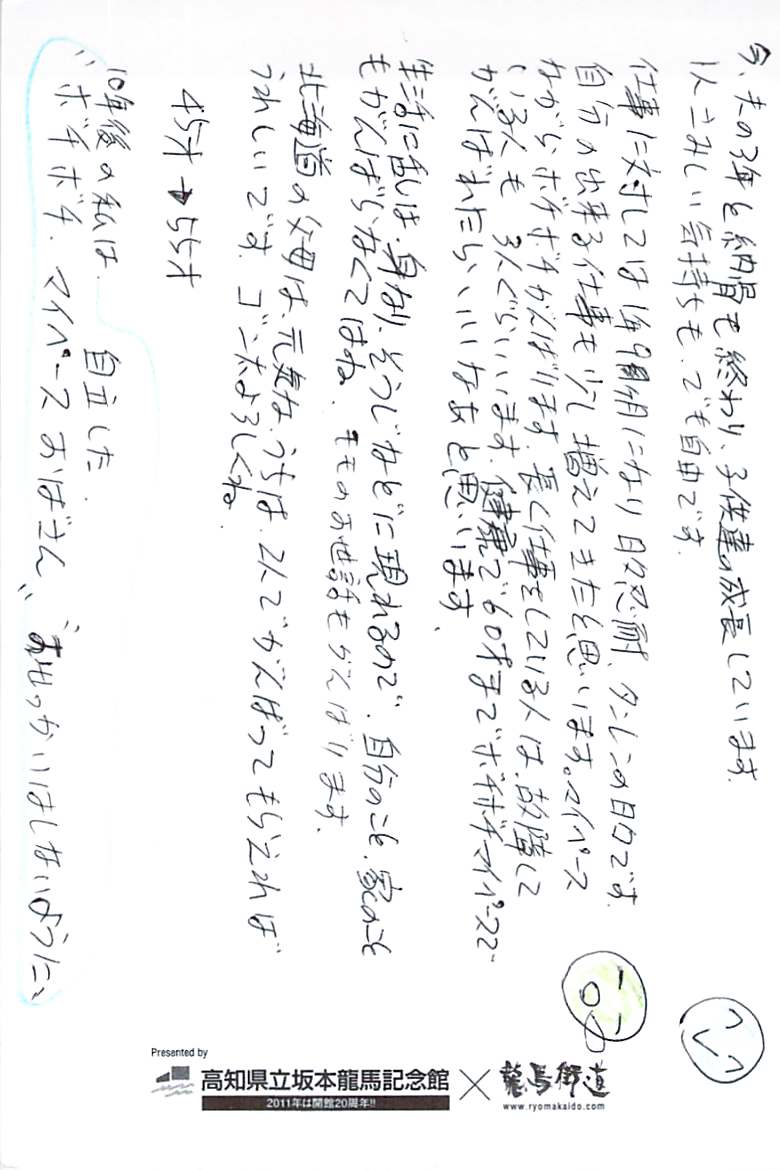 今、夫の3年も納骨も終わり、子供達の成長しています。
1人さみしい気持ちも.でも自由です.
仕事に対しては 1年9ヶ月になり 日々忍耐、タンレンの日々です.
自分の出来る仕事も少し増えてきたと思います。マイペース
ながら ボチボチがんばります.長く仕事をしている人は.故障して
いる人も 3人ぐらいいます.健康で60才までボチボチマイペースで
がんばれたら、いいなあと思います.
生活に乱れは、身なり、そうじなどに現れるので、自分のこと、家のこと
もがんばらなくてはね. モモのお世話もがんばります.
北海道の父母は元気なうちは.2人でがんばってもらえれば
うれしいです. ゴン太よろしくね.
45才→55才
10年後の私は. 自立した.
"ボチボチ. マイペース おばさん" "おせっかいはしないように"
Presented by
高知県立坂本龍馬記念館 × 龍馬街道
2011年は開館20周年!!
www.ryomakaido.com